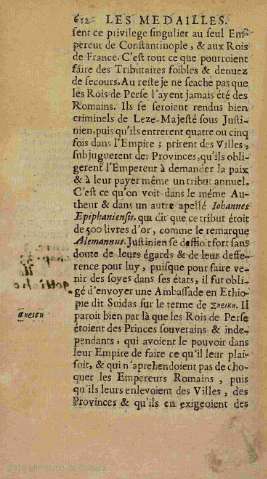 612 LES MEDAILLES.
sent ce privilege singulier au seul Em-
pereur de Constantinople, & aux Rois
de France. C'est tout ce que pourroient
faire des Tributaires foibles & denuez
de secours. Au reste je ne sçache pas que
les Rois de Perse l'ayent jamais été des
Romains. Ils se seroient rendus bien
criminels de Leze-Majesté sous Justi-
nien, puis qu'ils entrerent quatre ou cinq
fois dans l'Empire; prirent des Villes,
subjuguerent des Provinces, qu'ils obli-
gerent l'Empereur à demander la paix
& à leur payer même un tribut annuel.
C'est ce qu'on voit dans le même Au-
theur & dans un autre apellé Iohannes
Epiphaniensis, qui dit que ce tribut étoit
de 500 livres d'or, comme le remarque
Alemannus. Justinien se deffioit fort sans
doute de leurs égards & de leur deffe-
rence pour luy, puisque pour faire ve-
nir des soyes dans ses états, il fut obli-
gé d'envoyer une Ambassade en Ethio-
pie dit Suidas sur le terme de
paroit bien par là que les Rois de Perse
étoient des Princes souverains & inde-
pendants, qui avoient le pouvoir dans
leur Empire de faire ce qu'il leur plai-
soit, & qui n'aprehendoient pas de cho-
quer les Empereurs Romains, puis
qu'ils leurs enlevoient des Villes, des
Provinces & qu'ils en exigeoient des